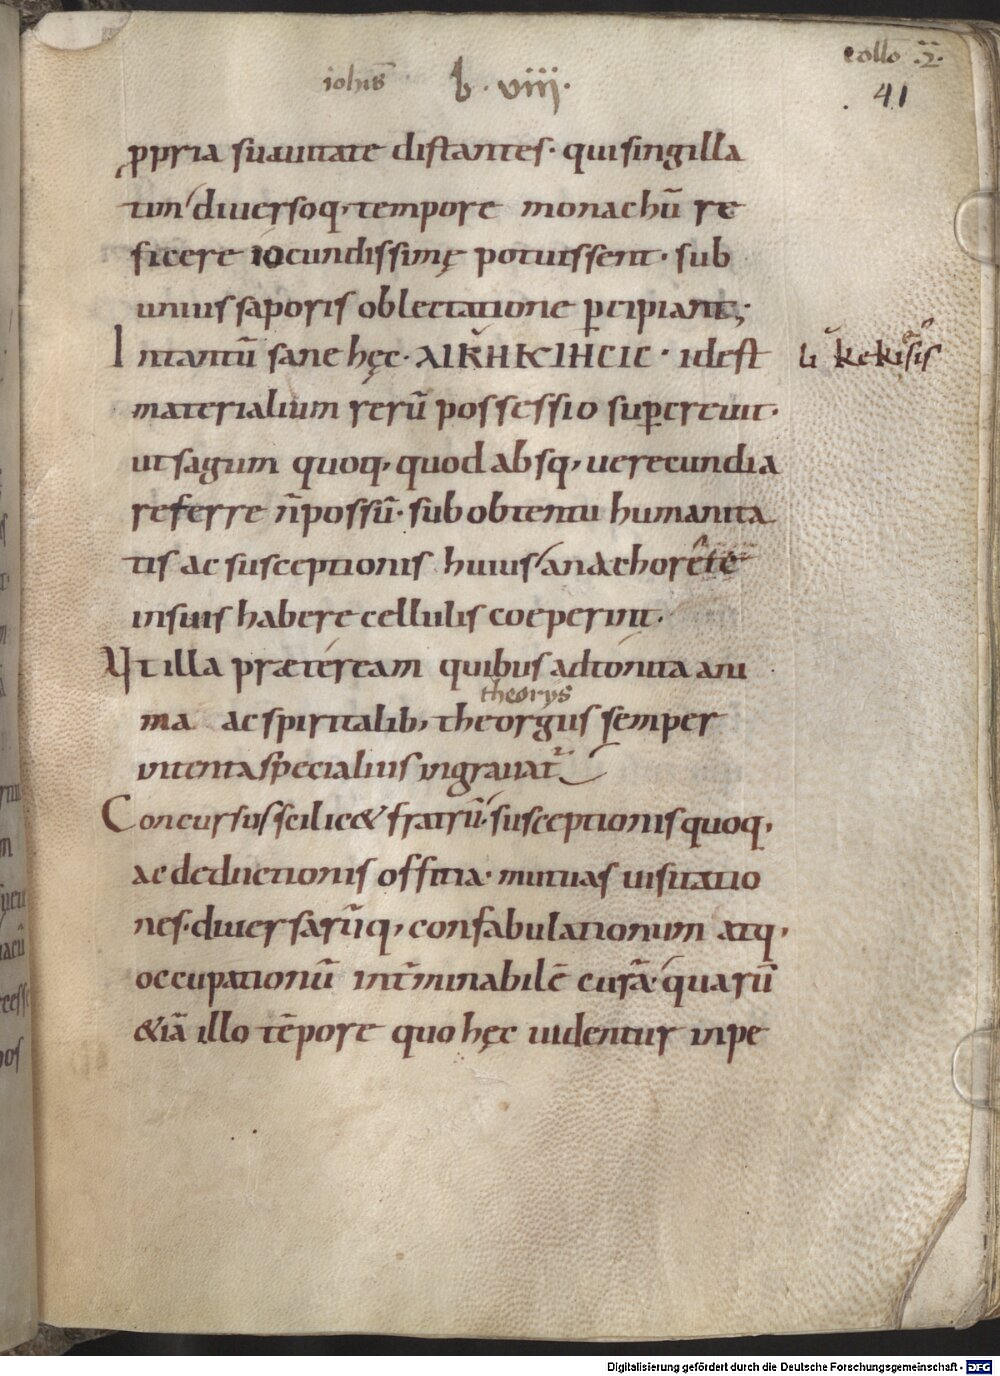 collo .2.
iohis b. viiij.
41
ppria suauitate distantes. qui singilla
tim diuersoq; tempore monachū re
ficere iocundissimę potuissent. sub
unius saporis oblectatione pcipiant;
Intantū sane hęc. ΑΙΚΗΚΙΗСΙС. idest
kekisis
materialium rerū possessio supcreuit.
ut sagum quoq; quod absq; uerecundia
referre n̄ possū. sub obtentu humanita
tis ac susceptionis huius anachorete
in suis habere cellulis coeperint.
Ut illa prætéream quibus adtónita ani
theorys
ma ac spiritalib; theorgiis semper
intenta specialius ingrauat
Concursus scilic& fratrū. susceptionis quoq;
ac deductionis offitia. mutuas uisitatio
nes. diuersarūq; confabulationum atq;
occupationū int̄minabilē curā. quarū
&iā illo tēpore quo hęc uidentur inpe
Digitalisierung gefördert durch die Deutsche Forschungsgemeinschaft - DFG